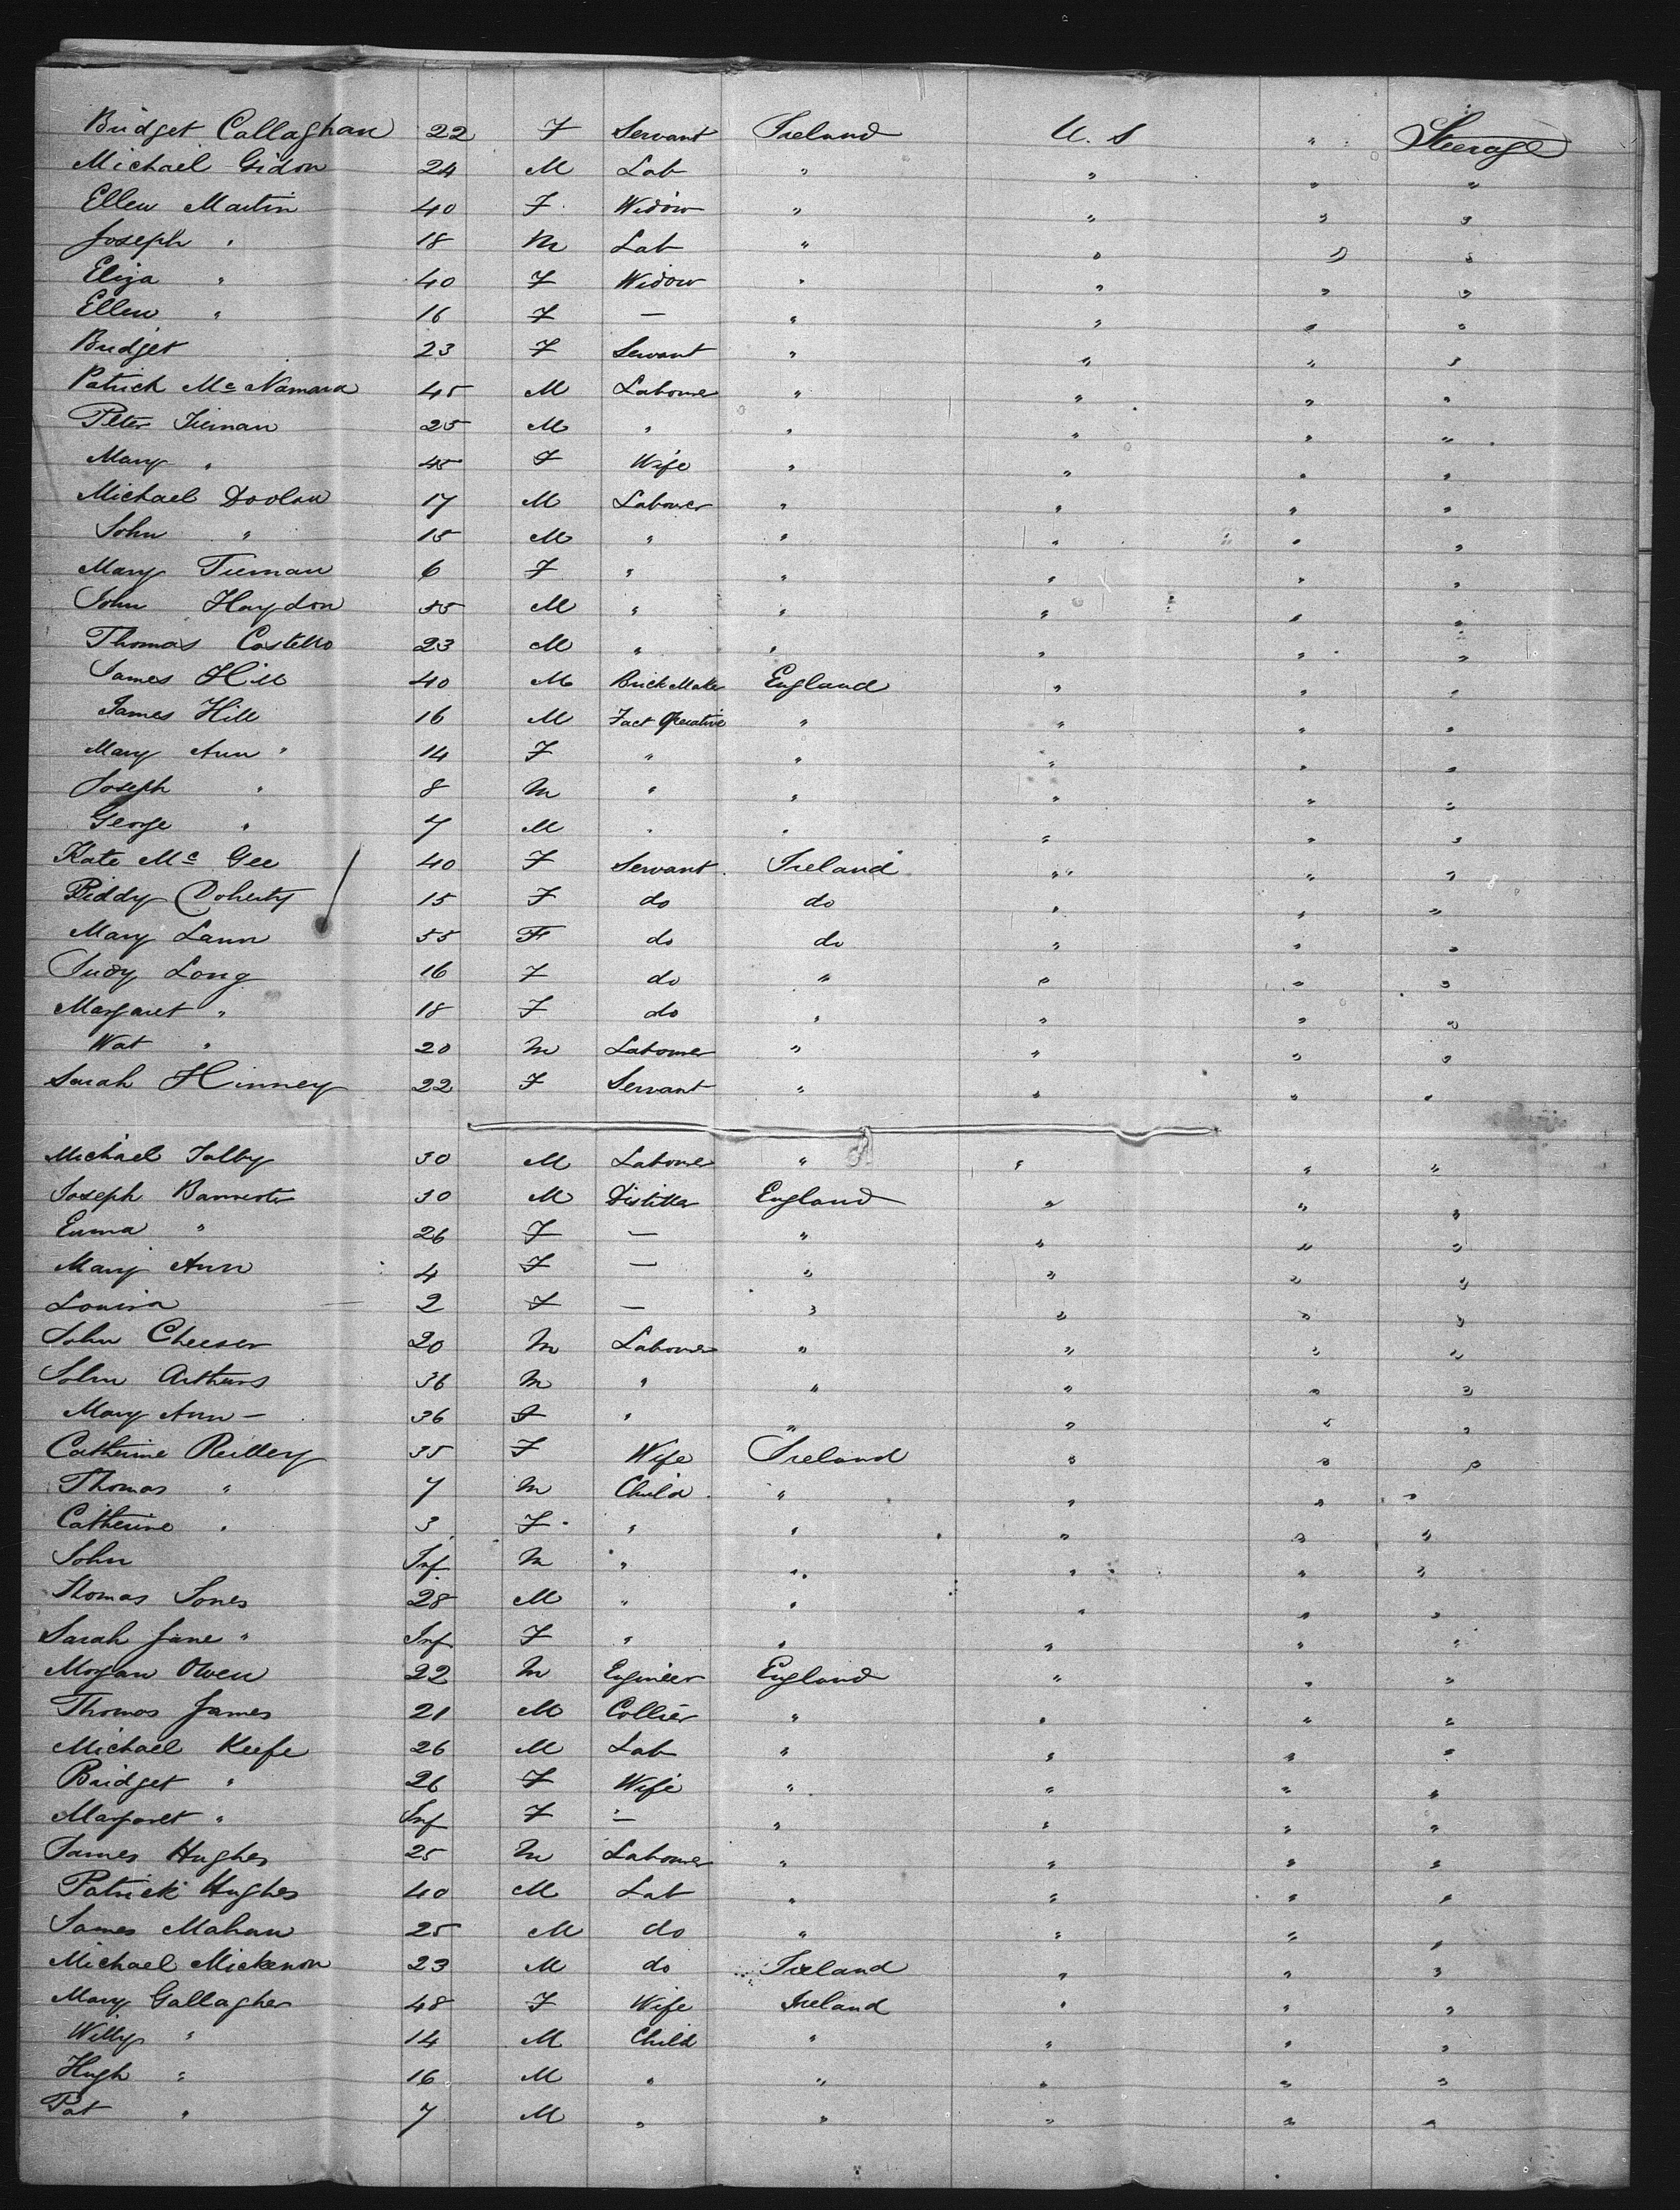 Bridget Callaghan 22 F Servant Ireland U. S " Steerage
Michael Gidon 24 M Lab " " " "
Ellen Martin 40 F Widow " " " "
Joseph " 18 M Lab " " " "
Eliza " 40 F Widow " " " "
Ellen " 16 F — " " " "
Bridget 23 F Servant " " " "
Patrick Mc Namara 45 M Labourer " " " "
Peter Tiernan 25 M " " " " "
Mary " 45 F Wife " " " "
Michael Doolan 17 M Labourer " " " "
John " 15 M " " " " "
Mary Tiernan 6 F " " " " "
John Haydon 55 M " " " " "
Thomas Costello 23 M " " " " "
James Hill 40 M Brick Maker England " " "
James Hill 16 M Fact Operative " " " "
Mary Ann " 14 F " " " " "
Joseph " 8 M " " " " "
George " 7 M " " " " "
Kate Mc Gee 40 F Servant Ireland " " "
Biddy Doherty 15 F do do " " "
Mary Lann 55 F do do " " "
Judy Long 16 F do " " " "
Margaret " 18 F do " " " "
Wat " 20 M Labourer " " " "
Sarah Hinney 22 F Servant " " " "
Michael 30 M Labourer " " " "
Joseph Bannister 30 M Distiller England " " "
Emma " 26 F — " " " "
Mary Ann 4 F — " " " "
Louisa 2 F — " " " "
John 20 M Labourer " " " "
John Arthurs 36 M " " " " "
Mary Ann — 36 F " " " " "
Catherine Reilley 35 F Wife Ireland " " "
Thomas " 7 M Child " " " "
Catherine " 3 F " " " " "
John Inf M " " " " "
Thomas Jones 28 M " " " " "
Sarah Jane " Inf F " " " " "
Morgan Owen 22 M Engineer England " " "
Thomas James 21 M Collier " " " "
Michael Keefe 26 M Lab " " " "
Bridget " 26 F Wife " " " "
Margaret " Inf F — " " " "
James Hughes 25 M Labourer " " " "
Patrick Hughes 40 M Lab " " " "
James Mahan 25 M do " " " "
Michael Mickenon 23 M do Ireland " " "
Mary Gallagher 48 F Wife Ireland " " "
Willy " 14 M Child " " " "
Hugh " 16 M " " " " "
Pat " 7 M " " " " "